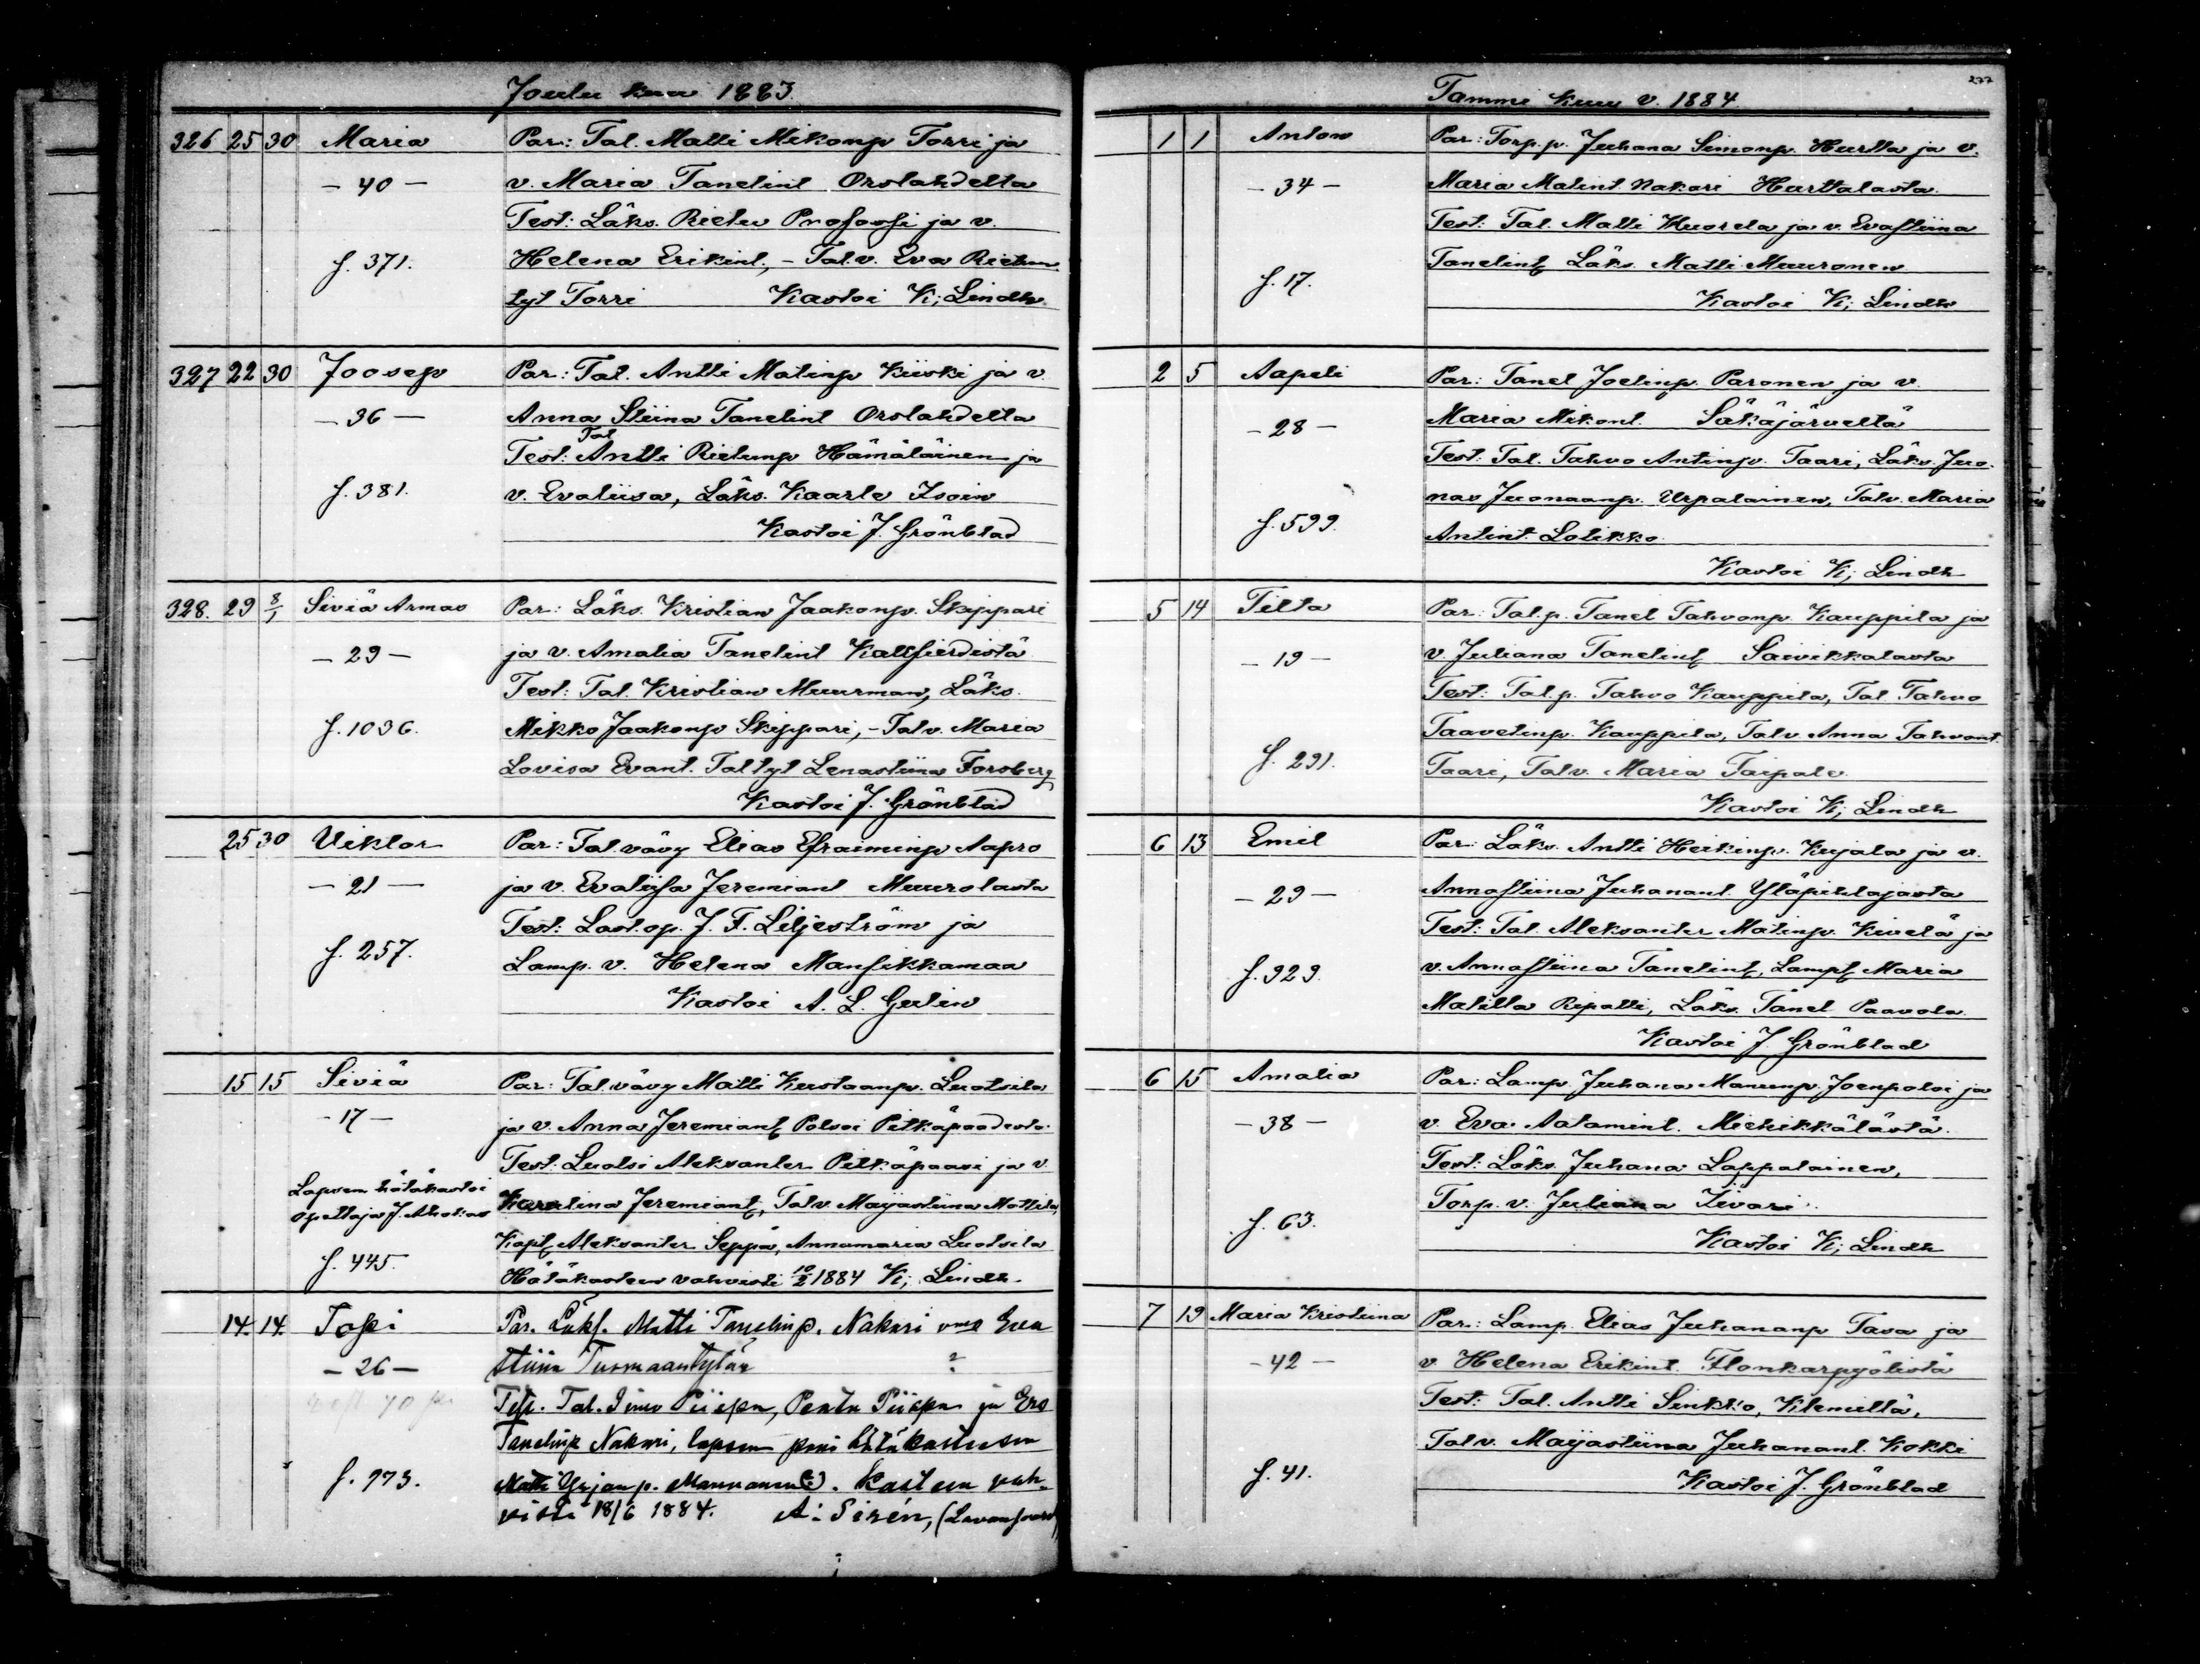 Joulu kuu 1883.
326 25 30 Maria Par: Tal. Matti Mikonp Torri ja
- 40 - v. Maria Tanelint Orslahdelta
Test: Läks. Rietu Profossi ja v.
f. 371. Helena Erikint., - Tal.v. Eva Rietun
tyt Torri Kastoi K; Lindh
327 22 30 Joosep Par: Tal. Antti Matinp Kiiski ja v.
- 36 - Anna Stiina Tanelint Orslahdelta
Tal
Test: Antti Rietunp Hämäläinen ja
f. 381. v. Evaliisa, Läks. Kaarle Isoin
Kastoi J. Grönblad
328. 29 8/1 Siviä Armas Par: Läks. Kristian Jaakonp. Skippari
- 29 - ja v. Amalia Tanelint Kallfierdistä
Test: Tal. Kristian Muurman, Läks.
f. 1036. Mikko Jaakonp Skippari, - Talv. Maria
Lovisa Evant. Taltyt Lenastiina Forsberg
Kastoi J. Grönblad
25 30 Viktor Par: Tal.vävy Elias Efraiminp Aapro
- 21 - ja v. Evaliisa Jeremiant Muurolasta
Test: Last.op. J. F. Liljeström ja
f. 257. Lamp. v. Helena Mansikkamaa
Kastoi A. L. Gulin
15 15 Siviä Par: Tal.vävy Matti Kustaanp. Luotsila
- 17 - ja v. Anna Jeremiant Polvoi Pitkäpaadesta
Test: Luotsi Aleksanter Pitkäpaasi ja v.
Lapsen hätäkastoi
opettaja J. Ahokas
Karolina Jeremiant, Talv. Maijastiina Mattila,
Kapt. Aleksanter Seppä, Annamaria Luotsila
f. 445. Hätäkasteen vahvisti 10/2 1884 K; Lindh.
14. 14. Topi Par. Läks. Matti Tanelinp. Nakari v. Eva
- 26 - Stiina Tuomaantytär
Test. Tal. Simo Piispa, Pentu Piispa ja Ero
Tanelinp Nakari, lapsen pani hätäkasteseen
f. 973. Matti Yrjänp. Mannanen(?). Kasteen vah-
visti 18/6 1884. A: Sirén, (Lavansaari)
277
Tammi kuu v. 1884
1 1 Anton Par: Torp.p. Juhana Simonp. Hurtta ja v.
- 34 - Maria Matint. Nakari Hurttalasta
Test: Tal. Matti Kuorela ja v. Evastiina
f. 17. Tanelint, Läks. Matti Muuronen
Kastoi K; Lindh
2 5 Aapeli Par: Tanel Joelinp. Paronen ja v.
- 28 - Maria Mikont. Säkäjärveltä
Test: Tal. Tahvo Antinp. Taari, Läks. Juo-
nas Juonaanp. Urpalainen, Talv. Maria
f. 599. Antint. Lolikko
Kastoi K; Lindh
5 14 Tilta Par: Tal.p. Tanel Tahvonp. Kauppila ja
- 19 - v. Juliana Tanelint Saivikkalasta
Test: Tal.p. Tahvo Kauppila, Tal. Tahvo
Taavetinp. Kauppila, Talv. Anna Tahvont.
f. 291. Taari, Talv. Maria Taipale
Kastoi K; Lindh
6 13 Emil Par: Läks. Antti Heikinp. Kujala ja v.
- 29 - Annastiina Juhanant Yläpihlajasta
Test: Tal. Aleksanter Matinp. Kivelä ja
f. 929. v. Annastiina Tanelint, Lampt. Maria
Matilta Ripatti, Läks. Tanel Paavola
Kastoi J. Grönblad
6 15 Amalia Par: Lamp. Juhana Manunp. Joenpoloi ja
- 38 - v. Eva Aatamint. Miehikkälästä.
Test: Läks. Juhana Lappalainen,
f. 63. Torp. v. Juliana Iivari.
Kastoi K; Lindh
7 19 Maria Kristiina Par: Lamp. Elias Juhananp Tasa ja
- 42 - v. Helena Erikint. Flonkarpyölistä
Test: Tal. Antti Sinkko, Klemillä,
Talv. Maijastiina Juhanant. Kokki
f. 41. Kastoi J. Grönblad